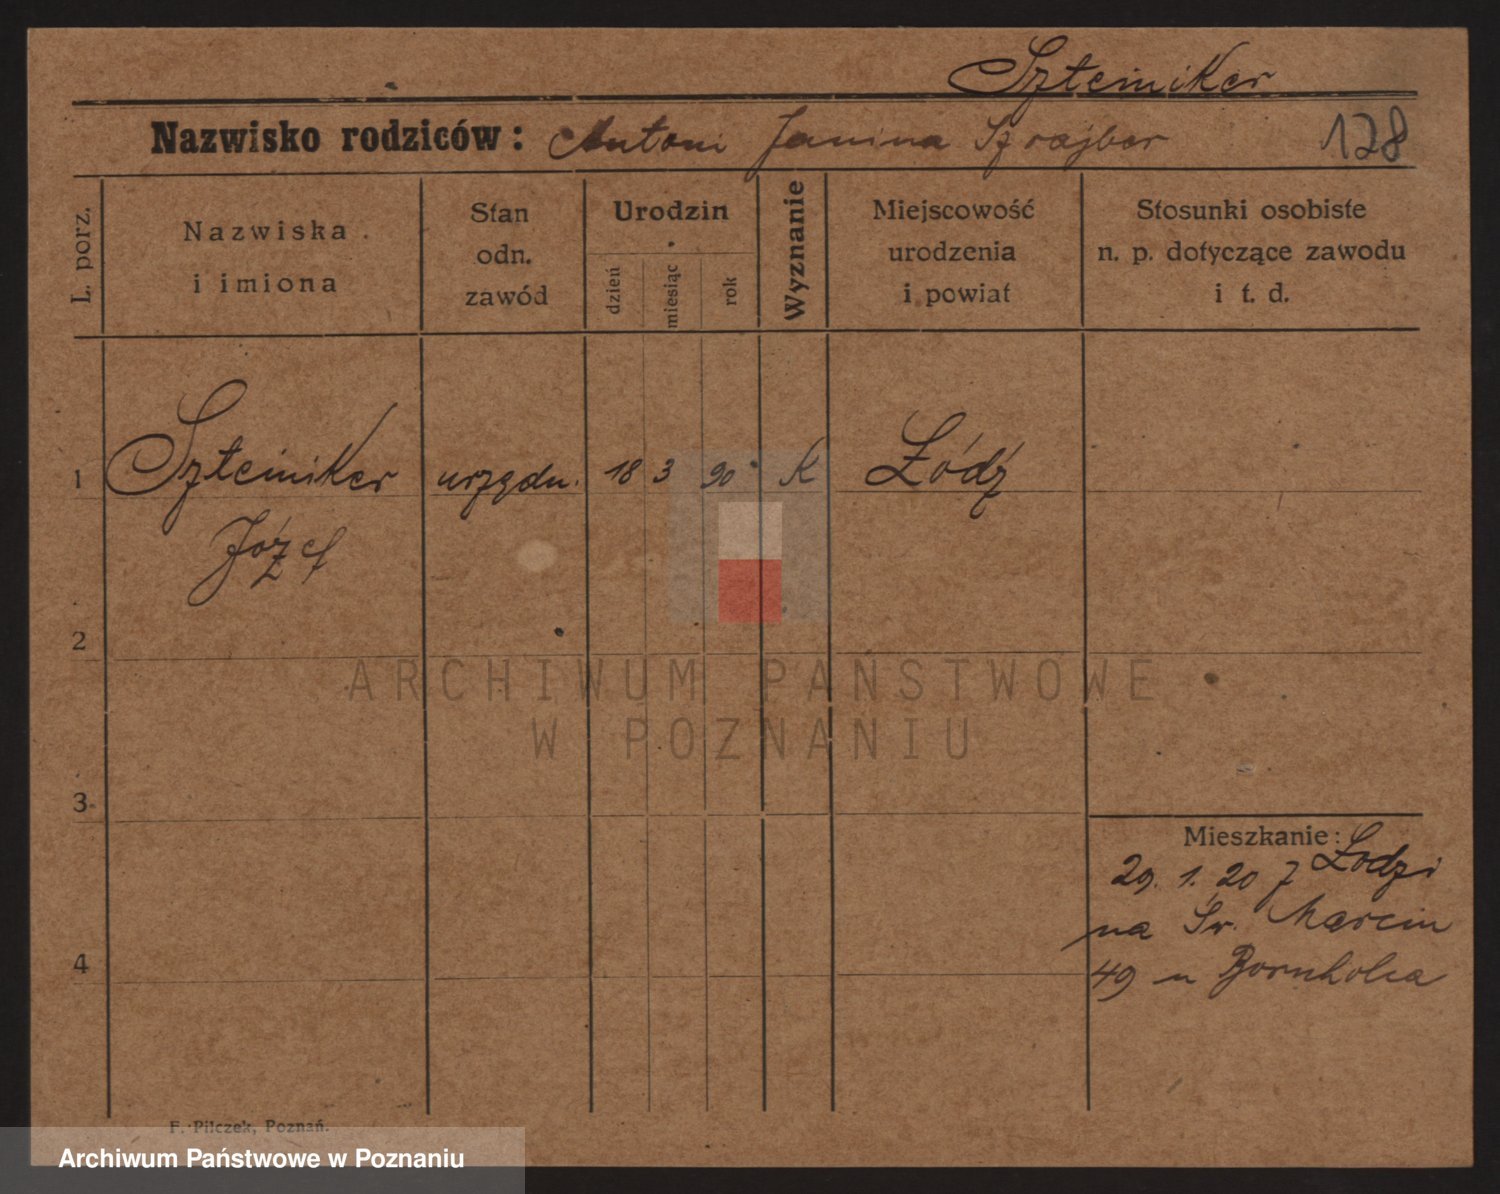 Szteiniker
Nazwisko rodziców: Antoni Janina Szrajber 178
L. porz.
Nazwiska
i imiona
Stan
odn.
zawód
Urodzin
dzień
miesiąc
rok
Wyznanie
Miejscowość
urodzenia
i powiat
Stosunki osobiste
n. p. dotyczące zawodu
i t. d.
1 Szteiniker urzędn. 18 3 90 K Łódź
Józef
2
ARCHIWUM PAŃSTWOWE
W POZNANIU
3
Mieszkanie:
29. 1. 20 z Łodzi
na Św. Marcin
4
49 u Bornholca
F. Pilczek, Poznań.
Archiwum Państwowe w Poznaniu